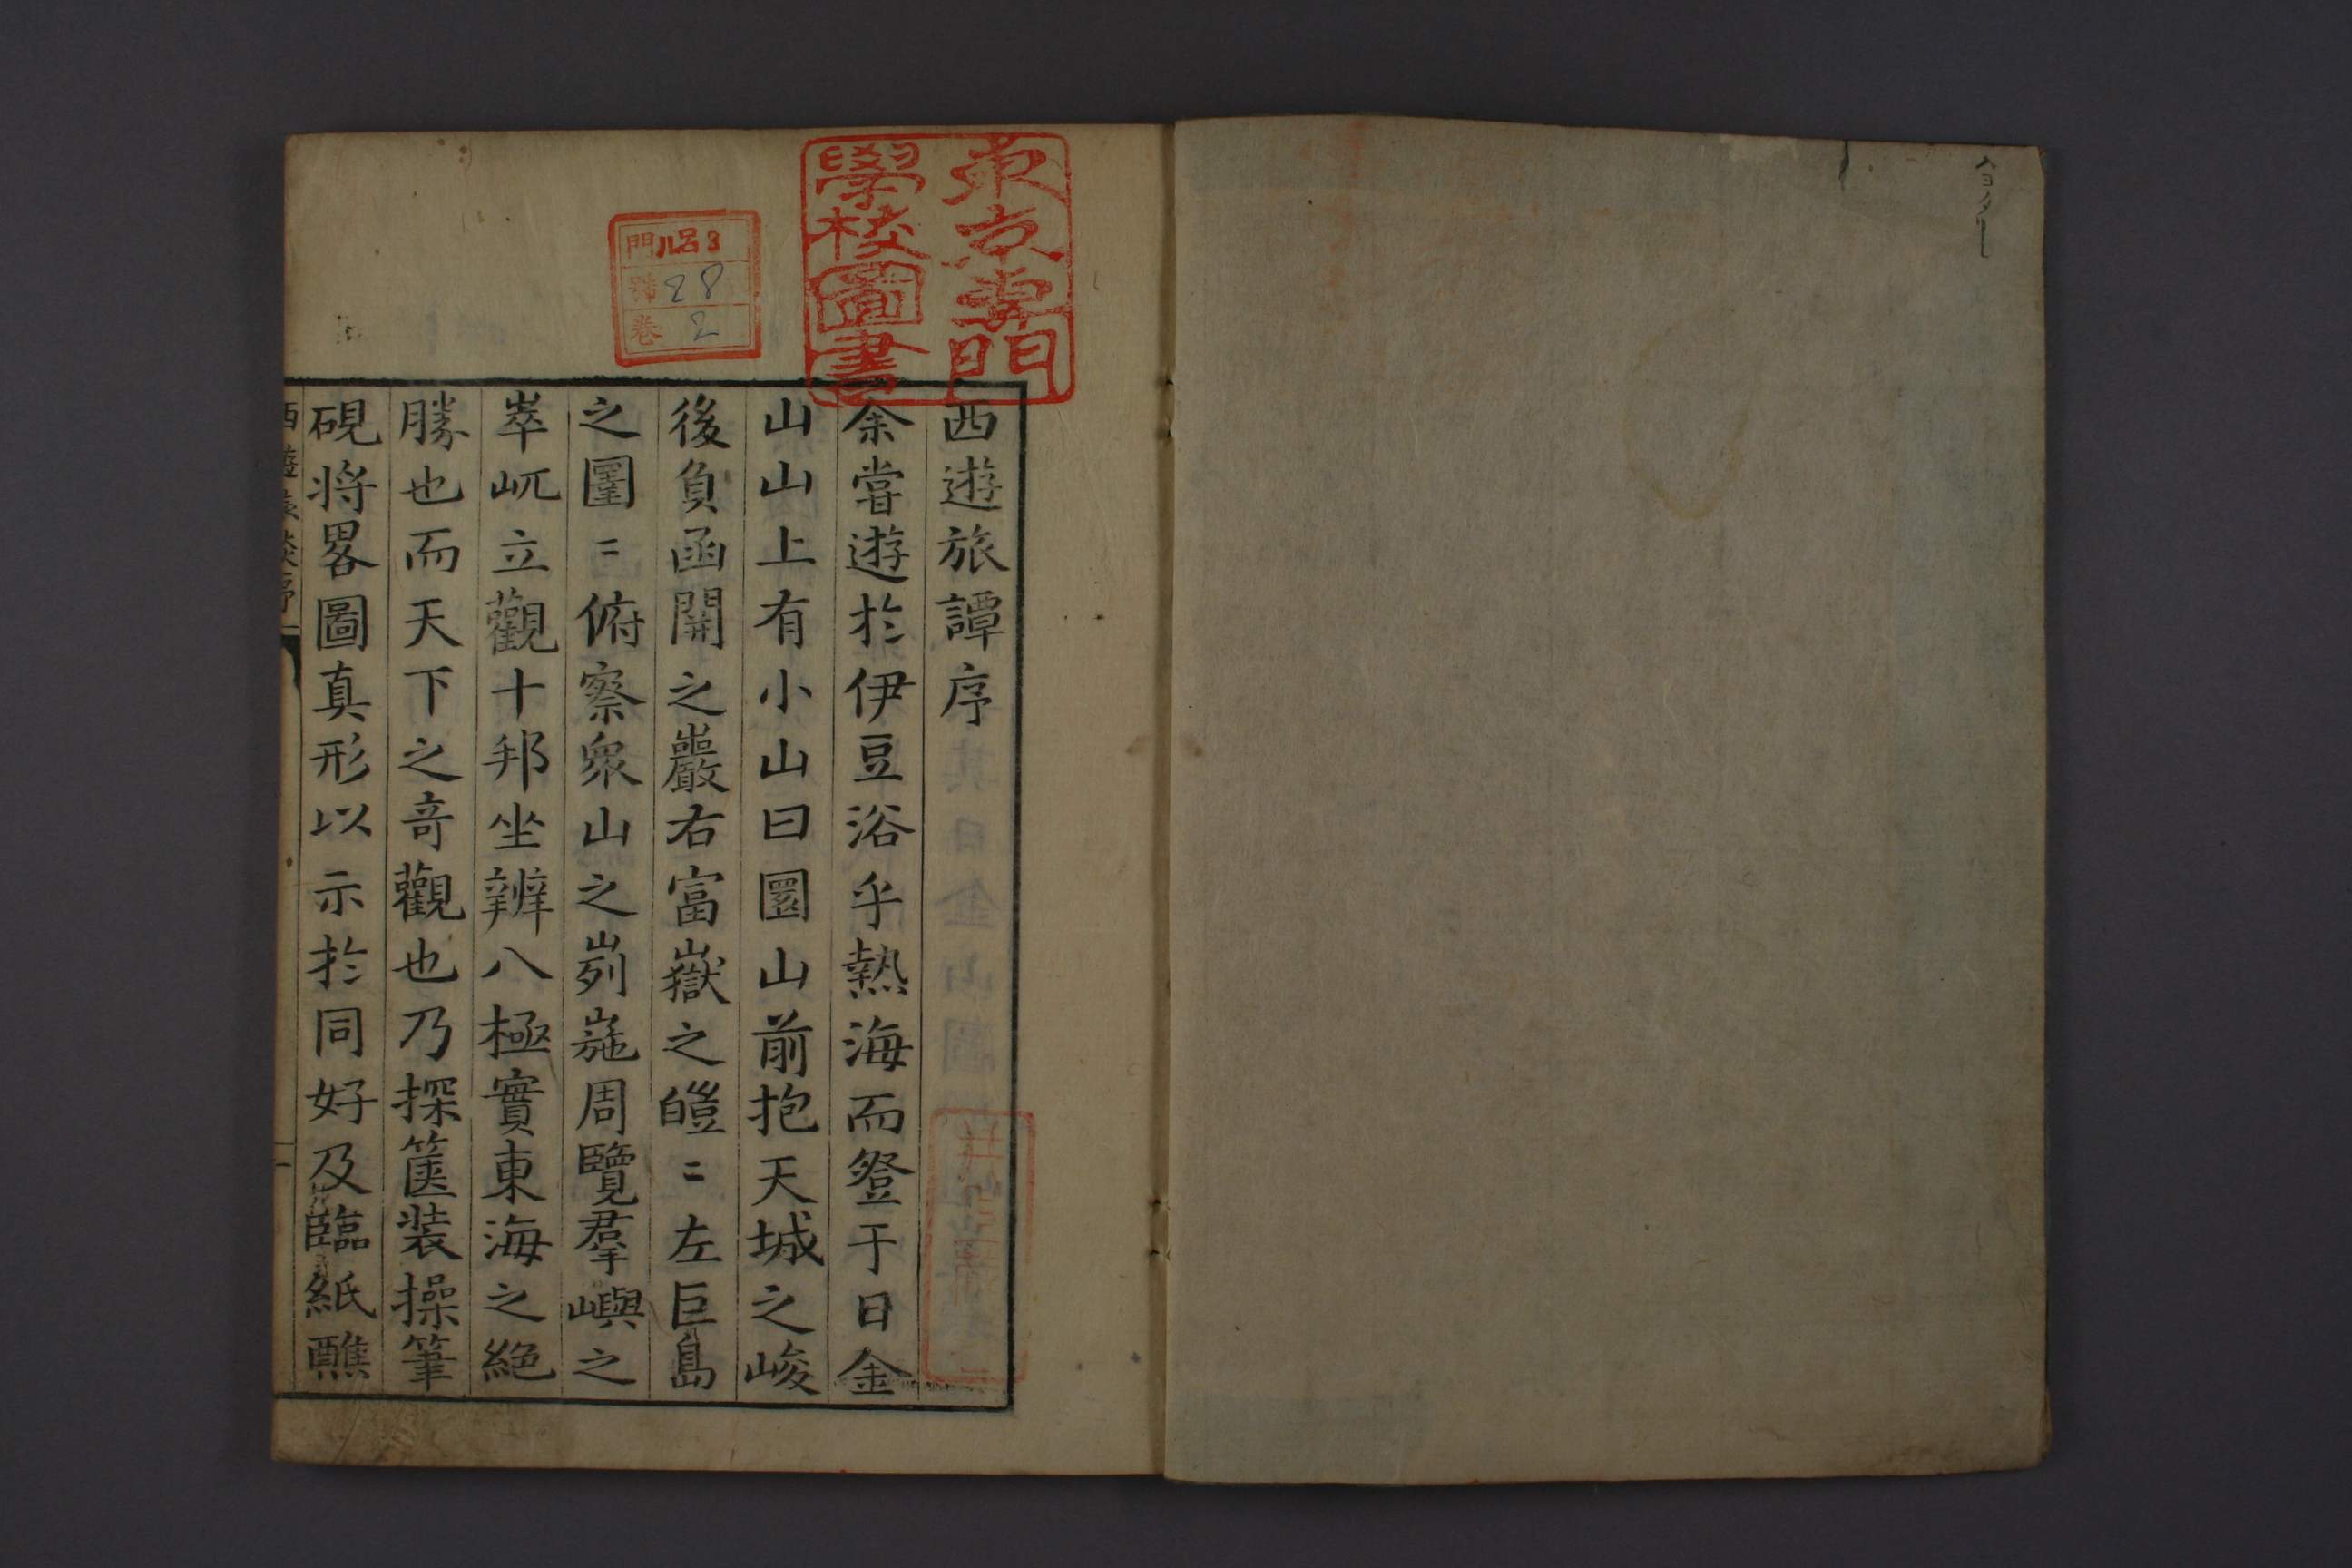 東京專門
學校圖書
門 ルロ 8
號 28
卷 2
西遊旅譚序
余嘗遊於伊豆浴乎熱海而登于日金
山山上有小山曰圓山前抱天城之峻
後負函關之巖右富嶽之皚〻左巨島
之圍〻俯察衆山之峛崺周覽羣嶼之
崒屼立觀十邦坐辨八極實東海之絕
勝也而天下之奇觀也乃探篋裝操筆
硯將畧圖真形以示於同好及臨紙醮